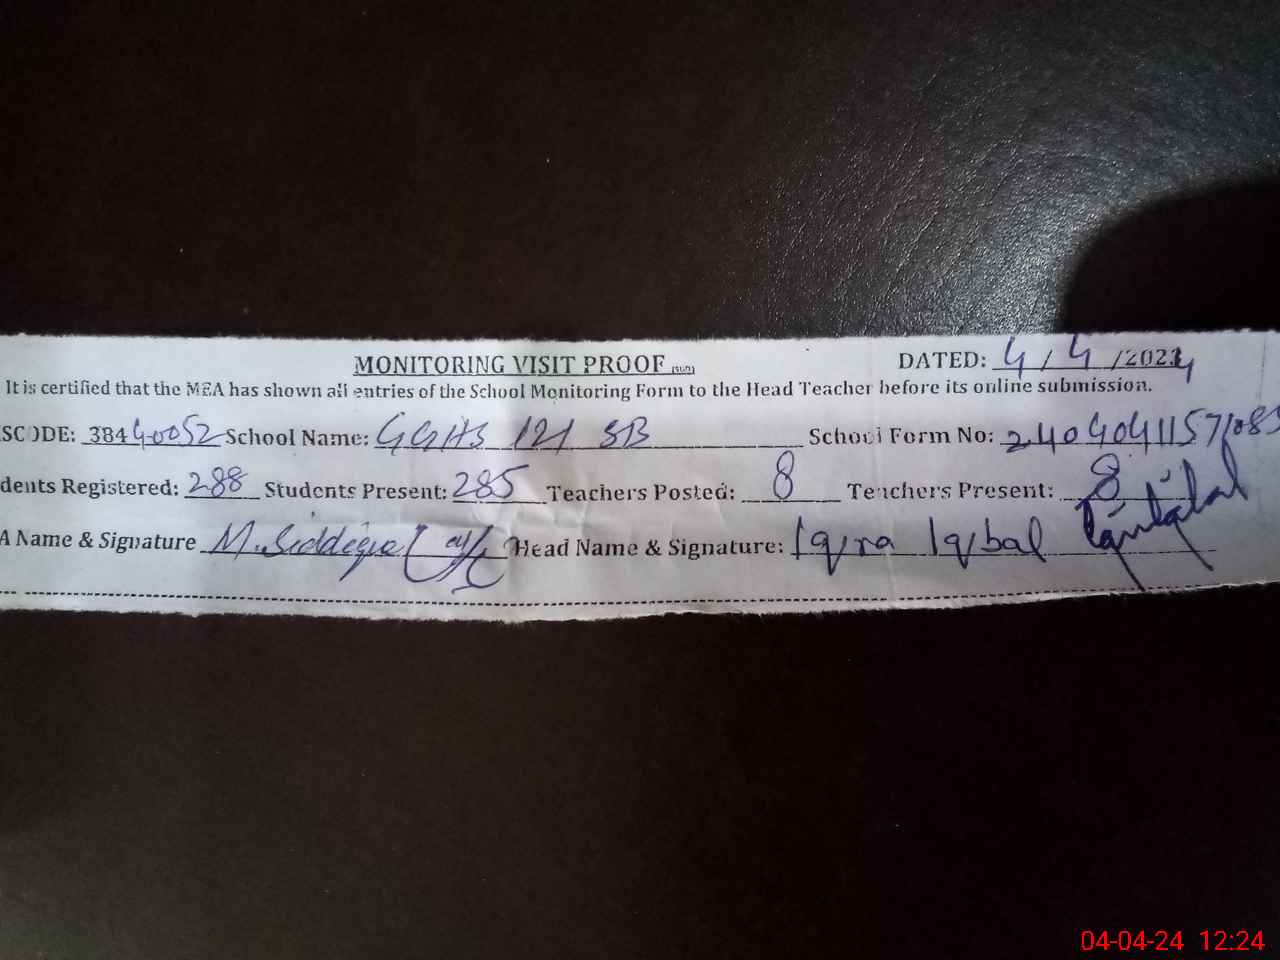 MONITORING VISIT PROOF DATED: 4/4/2024
It is certified that the MEA has shown all entries of the School Monitoring Form to the Head Teacher before its online submission.
SCODE: 38440052 School Name: GGHS 121 SB School Form No: 2404041157108
dents Registered: 288 Students Present: 285 Teachers Posted: 8 Teachers Present: 8
A Name & Signature M. Siddique Head Name & Signature: Iqra Iqbal
04-04-24 12:24